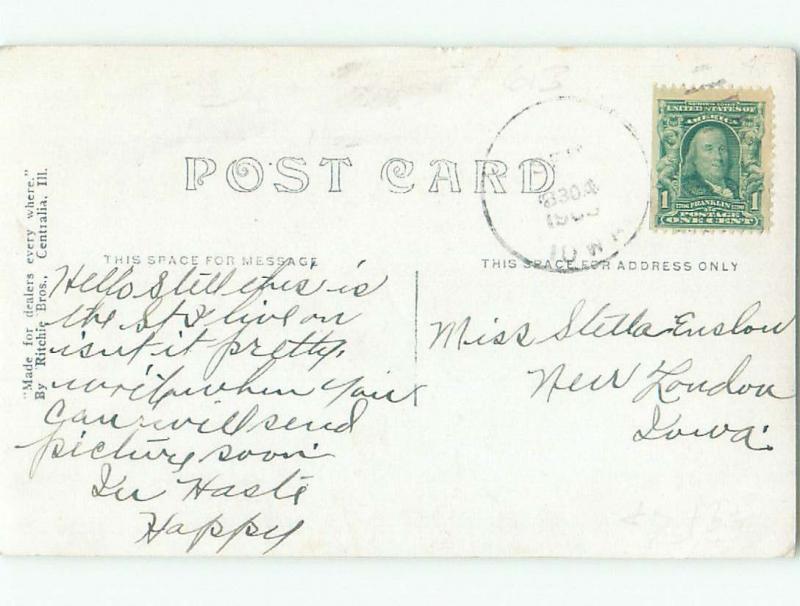 POST CARD
"Made for dealers every where."
By Ritchie Bros., Centralia, Ill.
THIS SPACE FOR MESSAGE
THIS SPACE FOR ADDRESS ONLY
Hello Stell this is
the St I live on
isnt it pretty.
write when you
can will send
picture soon
In Haste
Happy
Miss Stella Enslow
New London
Iowa.
UNITED STATES OF
AMERICA
1 FRANKLIN 1
POSTAGE
ONE CENT